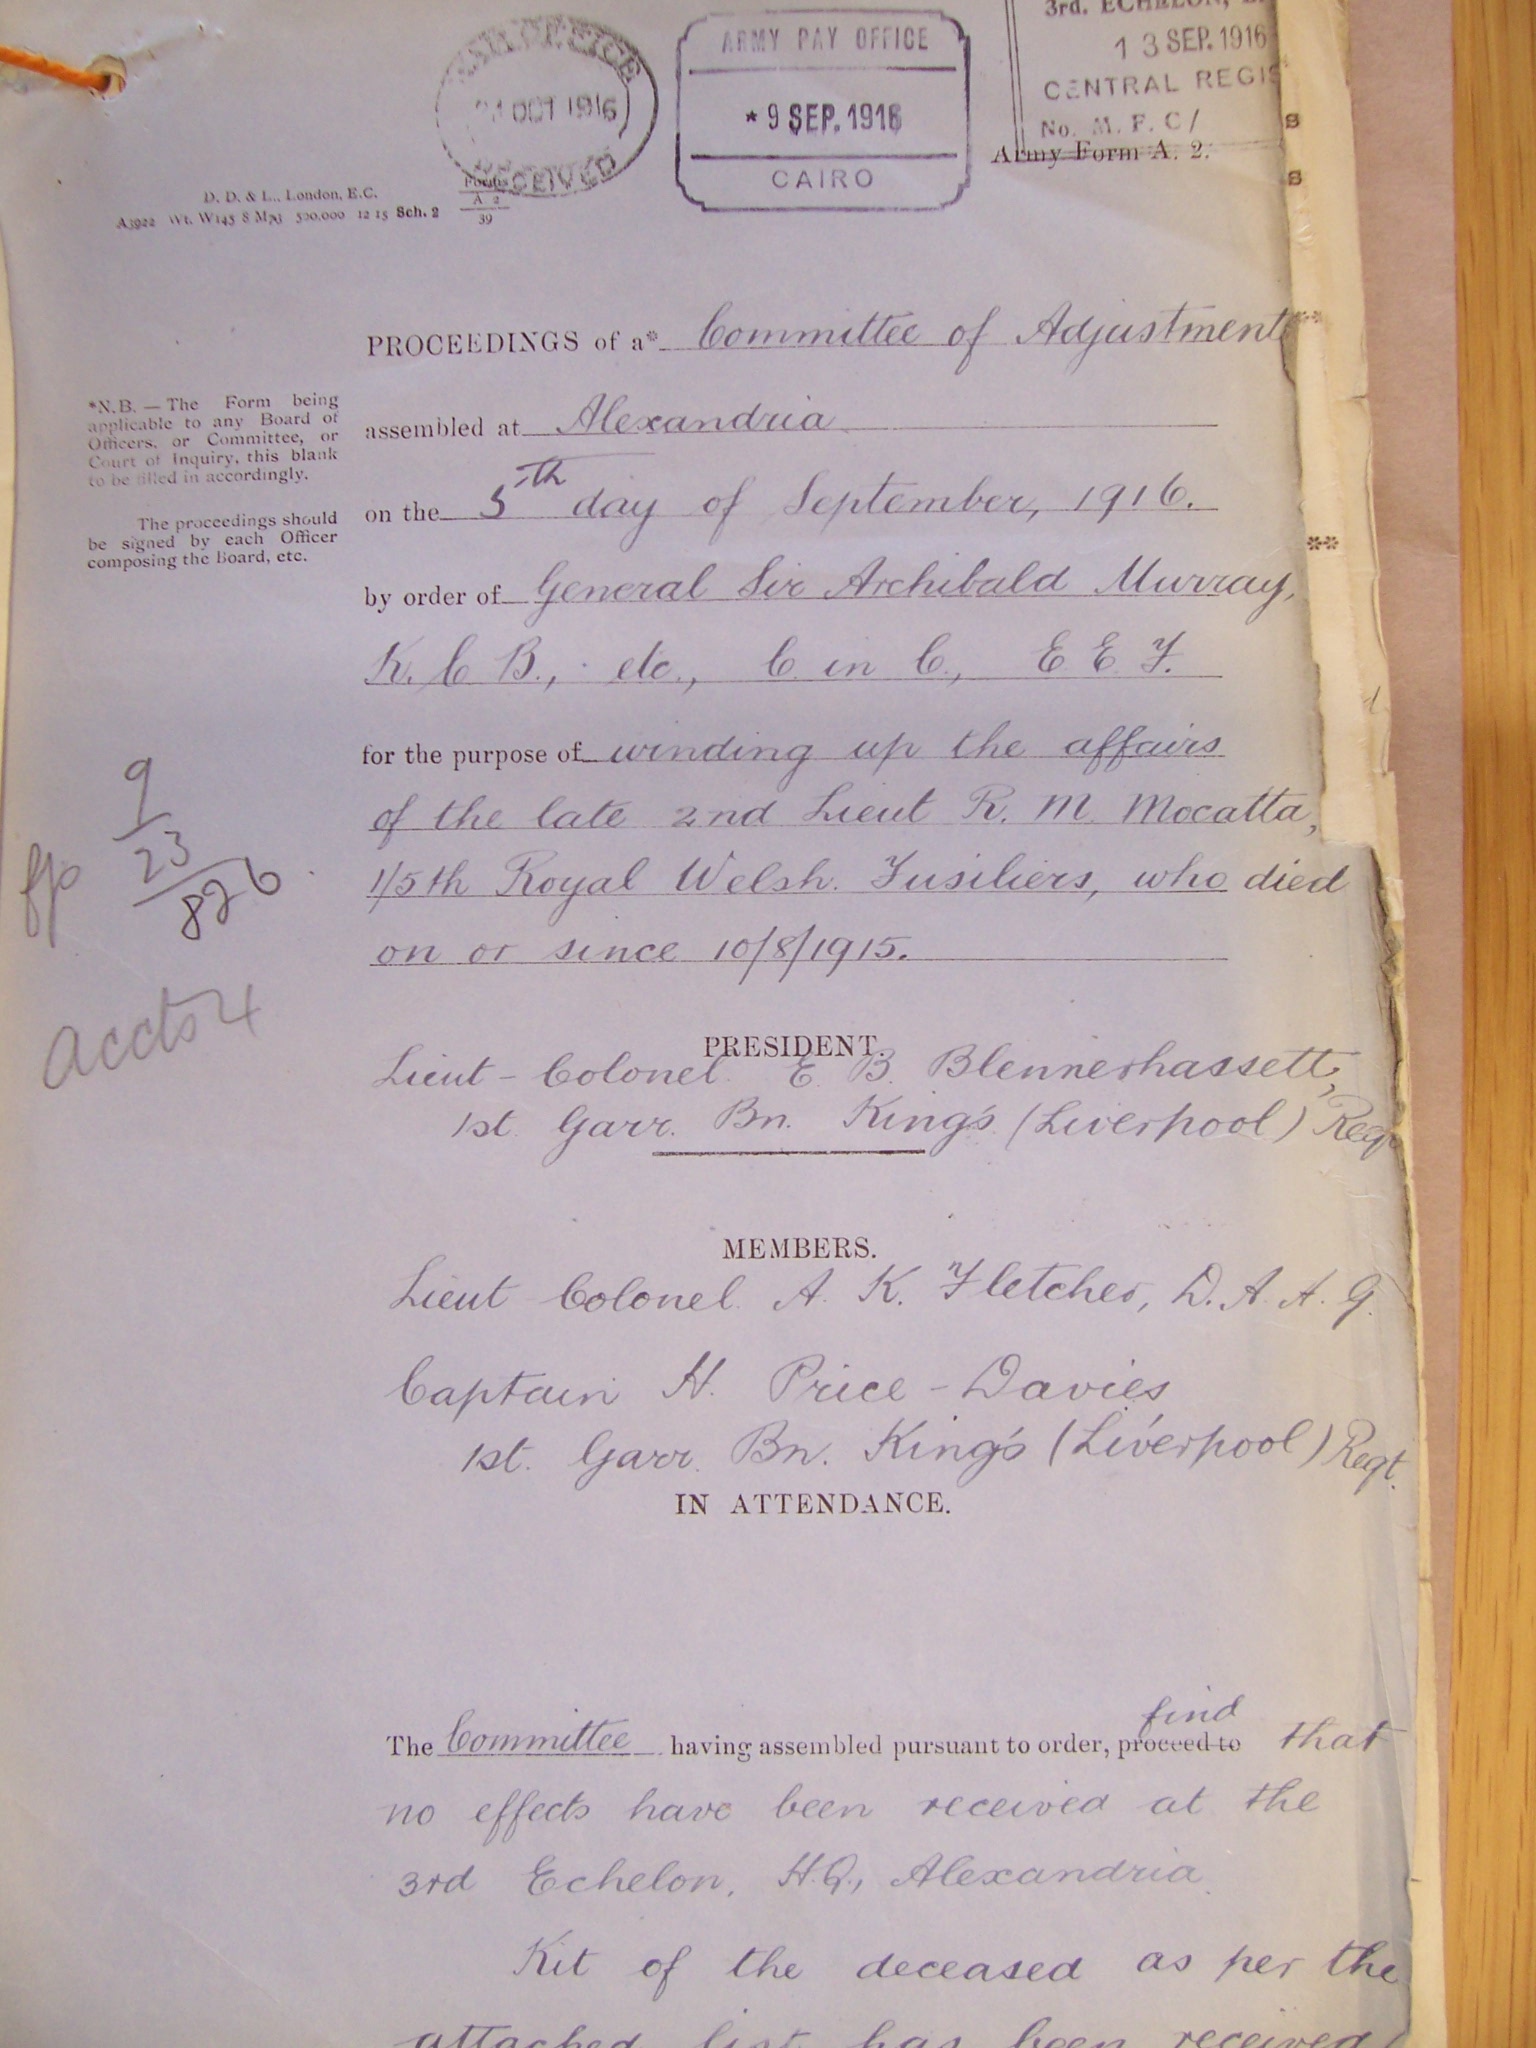 OFFICE
OCT 1916
RECEIVED
ARMY PAY OFFICE
* 9 SEP. 1916
CAIRO
3rd. ECHELON,
13 SEP. 1916
CENTRAL REGIS
No. M. F. C /
Army Form A. 2.
D. D. & L., London, E.C.
A3922 Wt. W145 8 M793 500,000 12 15 Sch. 2
Forms
A 2
39
PROCEEDINGS of a* Committee of Adjustment
assembled at Alexandria
on the 5th day of September, 1916.
by order of General Sir Archibald Murray,
K. C. B., etc., C in C., E E F.
for the purpose of winding up the affairs
of the late 2nd Lieut R. M. Mocatta,
1/5th Royal Welsh. Fusiliers, who died
on or since 10/8/1915.
*N.B. — The Form being
applicable to any Board of
Officers, or Committee, or
Court of Inquiry, this blank
to be filled in accordingly.
The proceedings should
be signed by each Officer
composing the Board, etc.
9
23
826
accts 4
PRESIDENT.
Lieut - Colonel E. B. Blennerhassett,
1st. Garr. Bn. King's (Liverpool) Regt
MEMBERS.
Lieut Colonel A. K. Fletcher, D. A. A. G.
Captain H. Price - Davies
1st. Garr. Bn. King's (Liverpool) Regt.
IN ATTENDANCE.
find
The Committee having assembled pursuant to order, proceed to that
no effects have been received at the
3rd Echelon, H.Q., Alexandria.
Kit of the deceased as per the
attached list has been received